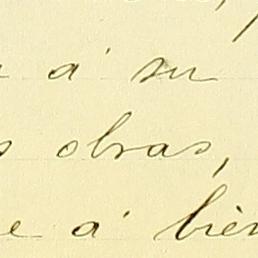 á su
s obras,
e á bien